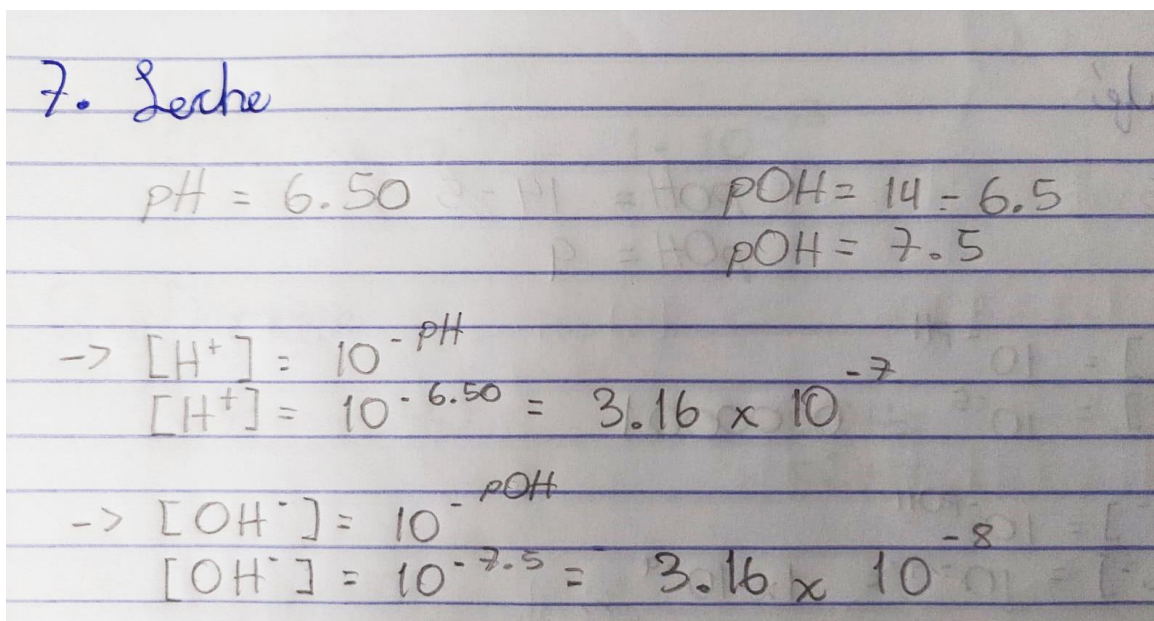 7. Leche
pH = 6.50 pOH = 14 - 6.5
pOH = 7.5
-> [H⁺] = 10^-pH
[H⁺] = 10^-6.50 = 3.16 x 10^-7
-> [OH⁻] = 10^-pOH
[OH⁻] = 10^-7.5 = 3.16 x 10^-8